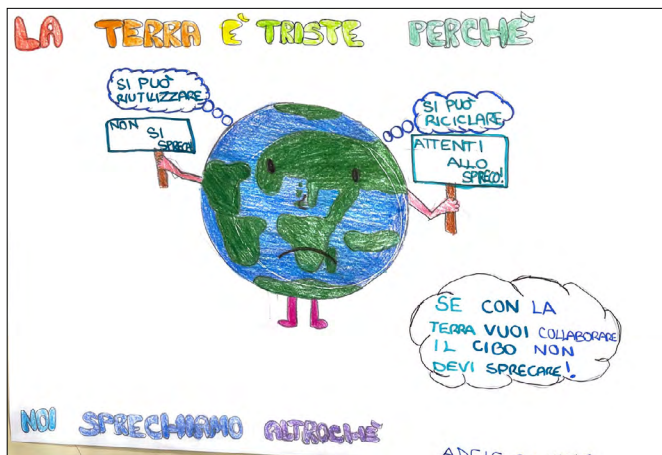 LA TERRA E' TRISTE PERCHÈ
SI PUÒ
RIUTILIZZARE
NON
SI
SPRECA!
SI PUÒ
RICICLARE
ATTENTI
ALLO
SPRECO!
SE CON LA
TERRA VUOI COLLABORARE
IL CIBO NON
DEVI SPRECARE!
NOI SPRECHIAMO ALTROCHÈ